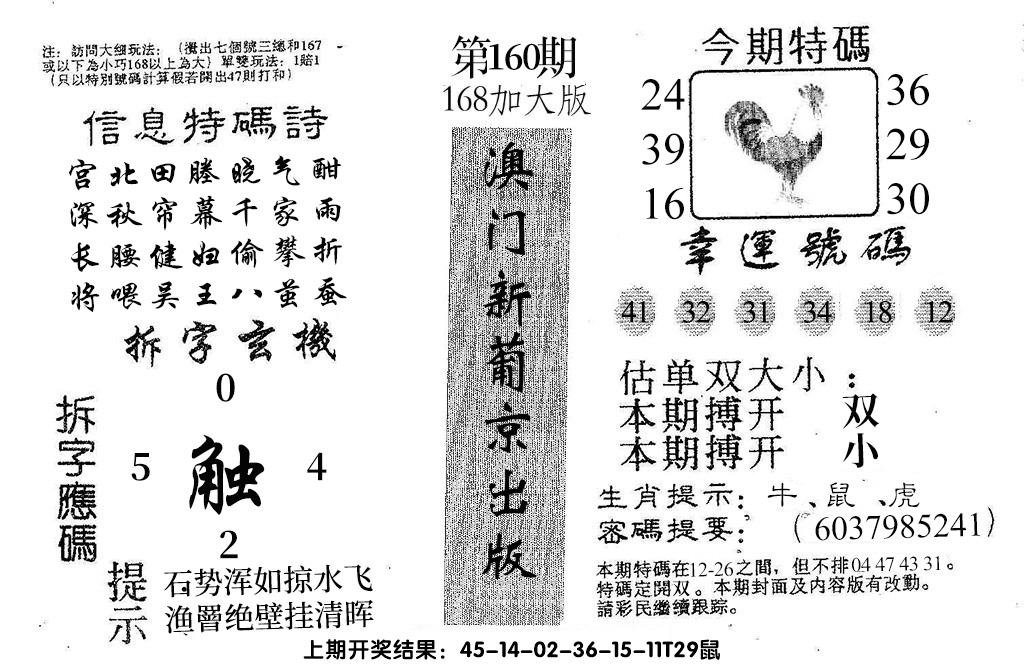 注：訪問大细玩法：（攪出七個號三總和167
或以下為小巧168以上為大）單雙玩法：1賠1
（只以特別號碼計算假若開出47則打和）
信息特碼詩
宫北田塍晓气酣
深秋帘幕千家雨
长腰健妇偷攀折
将喂吴王八茧蚕
拆字玄機
0
5 触 4
2
拆字應碼
提示
石势浑如掠水飞
渔罾绝壁挂清晖
第160期
168加大版
澳门新葡京出版
今期特碼
24 36
39 29
16 30
幸運號碼
41 32 31 34 18 12
估单双大小：
本期搏开 双
本期搏开 小
生肖提示：牛、鼠、虎
密碼提要：（6037985241）
本期特碼在12-26之間，但不排04 47 43 31。
特碼定開双。本期封面及内容版有改動。
請彩民繼續跟踪。
上期开奖结果：45-14-02-36-15-11T29鼠